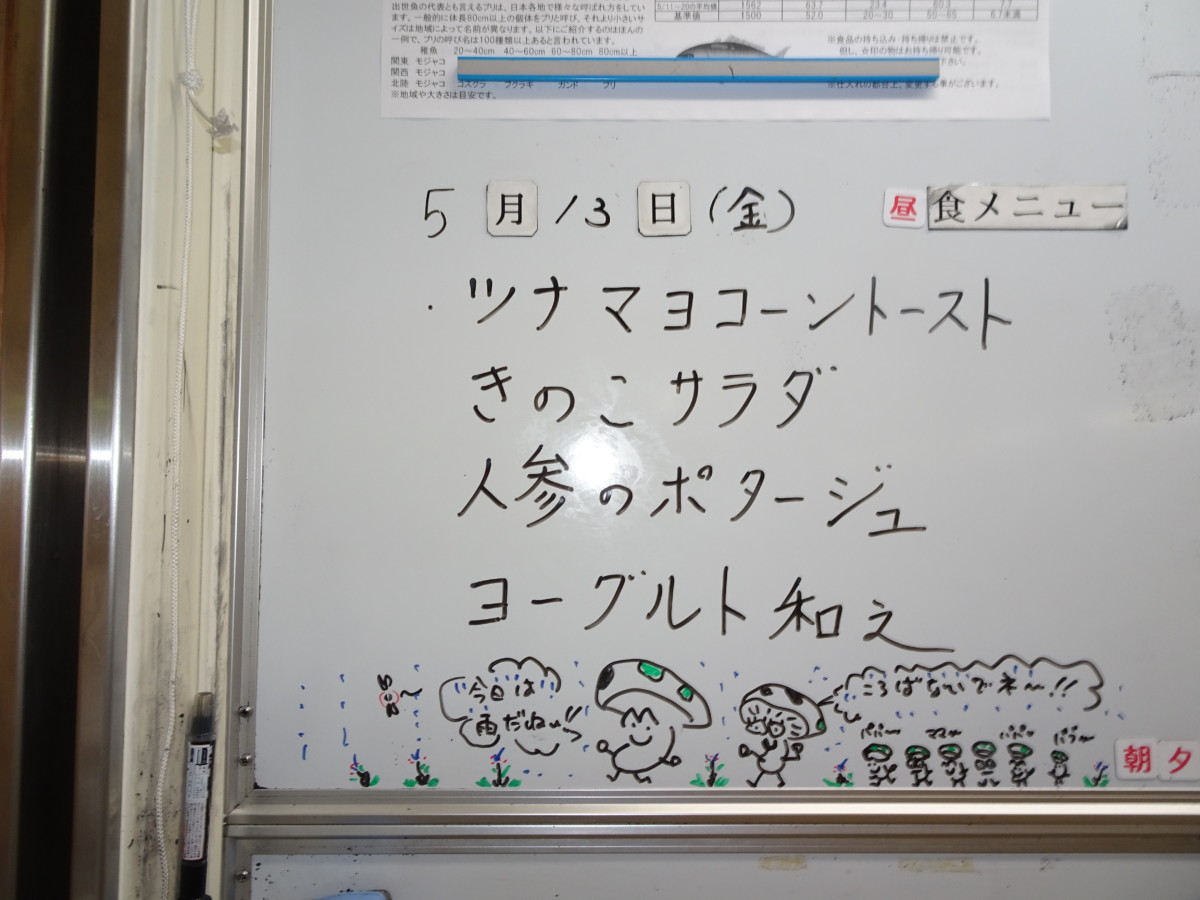 出世魚の代表とも言えるブリは、日本各地で様々な呼ばれ方をしています。一般的に体長80cm以上の個体をブリと呼び、それより小さいサイズは地域によって名前が異なります。以下にご紹介するのはほんの一例で、ブリの呼び名は100種類以上あると言われています。
稚魚 20~40cm 40~60cm 60~80cm 80cm以上
関東 モジャコ
関西 モジャコ
北陸 モジャコ コズクラ フクラギ ガンド ブリ
※地域や大きさは目安です。
5/11~20の平均値 1562 63.7 23.4 60.3 7.7
基準値 1500 52.0 20~30 50~65 6.7未満
※食品の持ち込み・持ち帰りは禁止です。
但し、☆印の物はお持ち帰り可能です。
※仕入れの都合上、変更する事がございます。
5月13日(金) 昼食メニュー
・ツナマヨコーントースト
きのこサラダ
人参のポタージュ
ヨーグルト和え
今日は
雨だねぃ!!
ころばないでネ~!!
朝 夕